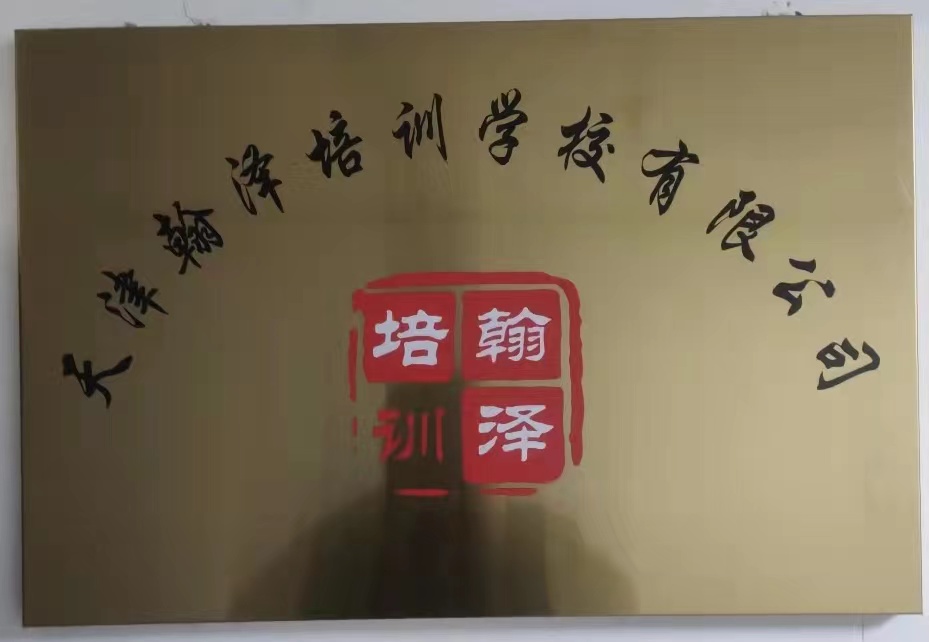 天津翰泽培训学校有限公司
翰泽
培训